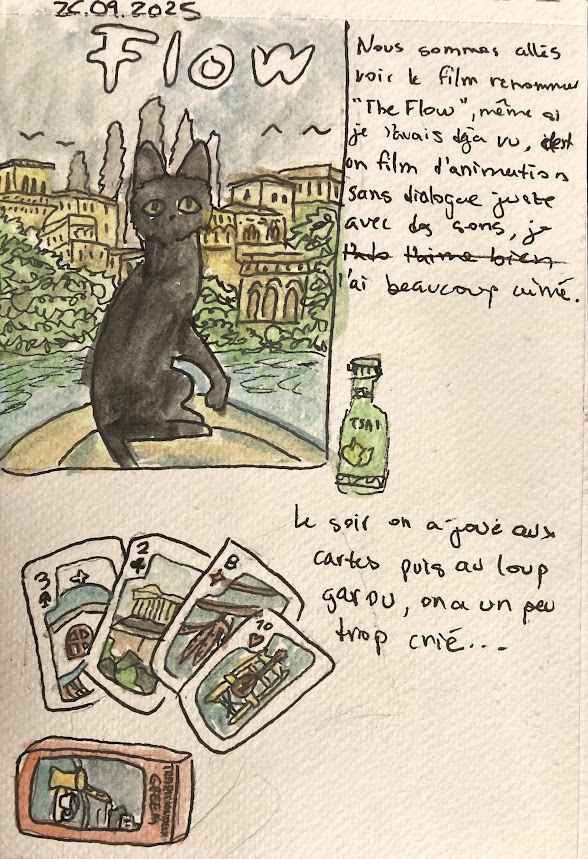 26.09.2025
Flow
Nous sommes allés
voir le film renommer
"The Flow", même si
je l'avais déjà vu, c'est
un film d'animation
sans dialogue juste
avec des sons, je
t'aime bien
l'ai beaucoup aimé.
TSAI
Le soir on a joué aux
cartes puis au loup
garou, on a un peu
trop crié...
3
2
8
10
GREECE